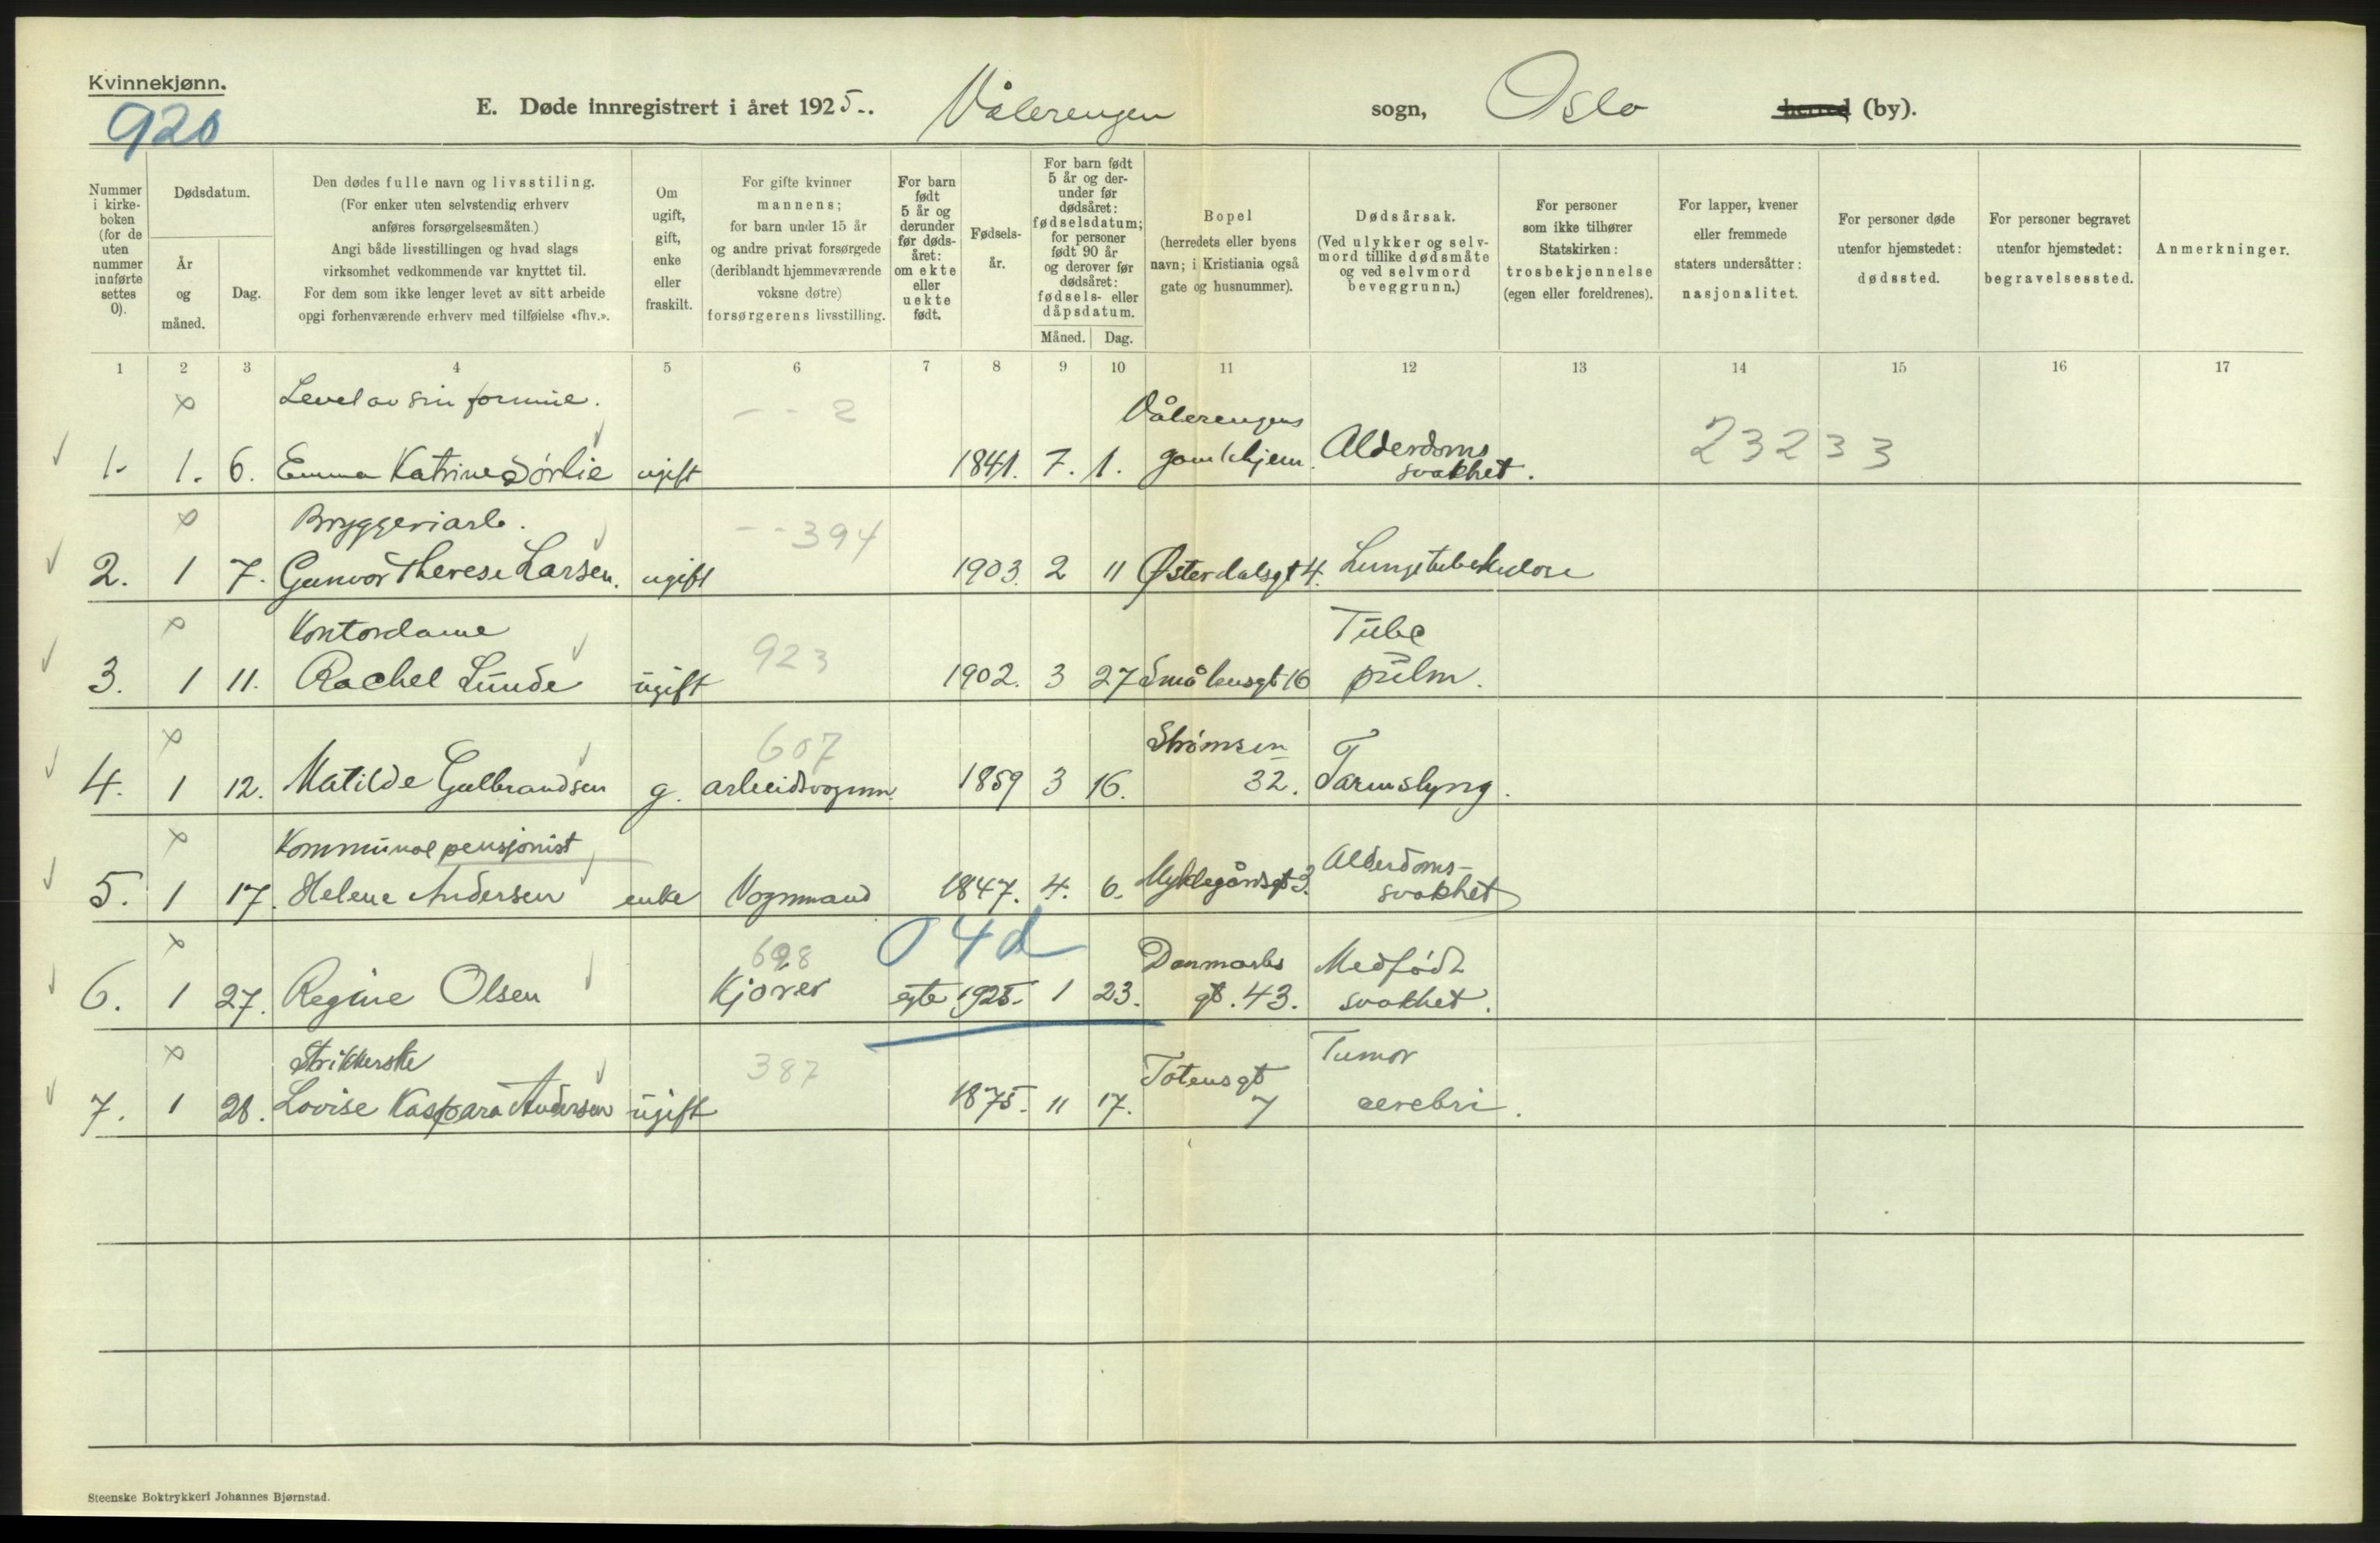 Kvinnekjønn.
920
E. Døde innregistrert i året 1925. Vålerengen sogn, Oslo herred (by).
Nummer i kirkeboken (for de uten nummer innførte settes 0).
Dødsdatum.
År og måned.
Dag.
Den dødes fulle navn og livsstiling.
(For enker uten selvstendig erhverv
anføres forsørgelsesmåten.)
Angi både livsstillingen og hvad slags
virksomhet vedkommende var knyttet til.
For dem som ikke lenger levet av sitt arbeide
opgi forhenværende erhverv med tilføielse «fhv.».
Om ugift, gift, enke eller fraskilt.
For gifte kvinner
mannens;
for barn under 15 år
og andre privat forsørgede
(deriblandt hjemmeværende
voksne døtre)
forsørgerens livsstilling.
For barn født 5 år og derunder før dødsåret: om ekte eller uekte født.
Fødselsår.
For barn født 5 år og derunder før dødsåret: fødselsdatum; for personer født 90 år og derover før dødsåret: fødsels- eller dåpsdatum.
Måned. Dag.
Bopel
(herredets eller byens
navn; i Kristiania også
gate og husnummer).
Dødsårsak.
(Ved ulykker og selvmord tillike dødsmåte
og ved selvmord
beveggrunn.)
For personer
som ikke tilhører
Statskirken:
trosbekjennelse
(egen eller foreldrenes).
For lapper, kvener
eller fremmede
staters undersåtter:
nasjonalitet.
For personer døde
utenfor hjemstedet:
dødssted.
For personer begravet
utenfor hjemstedet:
begravelsessted.
Anmerkninger.
1 2 3 4 5 6 7 8 9 10 11 12 13 14 15 16 17
Levet av sin formue. -- 2 Vålerengens
1. 1. 6. Emma Katrine Sörlie ugift 1841. 7. 1. gamlehjem. Alderdoms svakhet. 23233
Bryggeriarb. -- 394
2. 1 7. Gunvor Therese Larsen. ugift 1903. 2 11 Østerdalsgt 4. Lungetuberkulose
Kontordame 923 Tube
3. 1 11. Rachel Lunde ugift 1902. 3 27 Smålensgt 16 pulm.
607 Strömsvn
4. 1 12. Matilde Gulbrandsen g. arbeidsvognm. 1859 3 16. 32. Tarmslyng.
Kommunal pensjonist Alderdoms-
5. 1 17. Helene Andersen enke Vognmand 1847. 4. 6. Myklegårdsgt 3. svakhet
698 04d Danmarks Medfödt
6. 1 27. Regine Olsen Kjører egte 1925. 1 23. gt. 43. svakhet.
Strikkerske 387 Totensgt Tumor
7. 1 28. Lovise Kaspara Andersen ugift 1875. 11 17. 7 cerebri.
Steenske Boktrykkeri Johannes Bjørnstad.